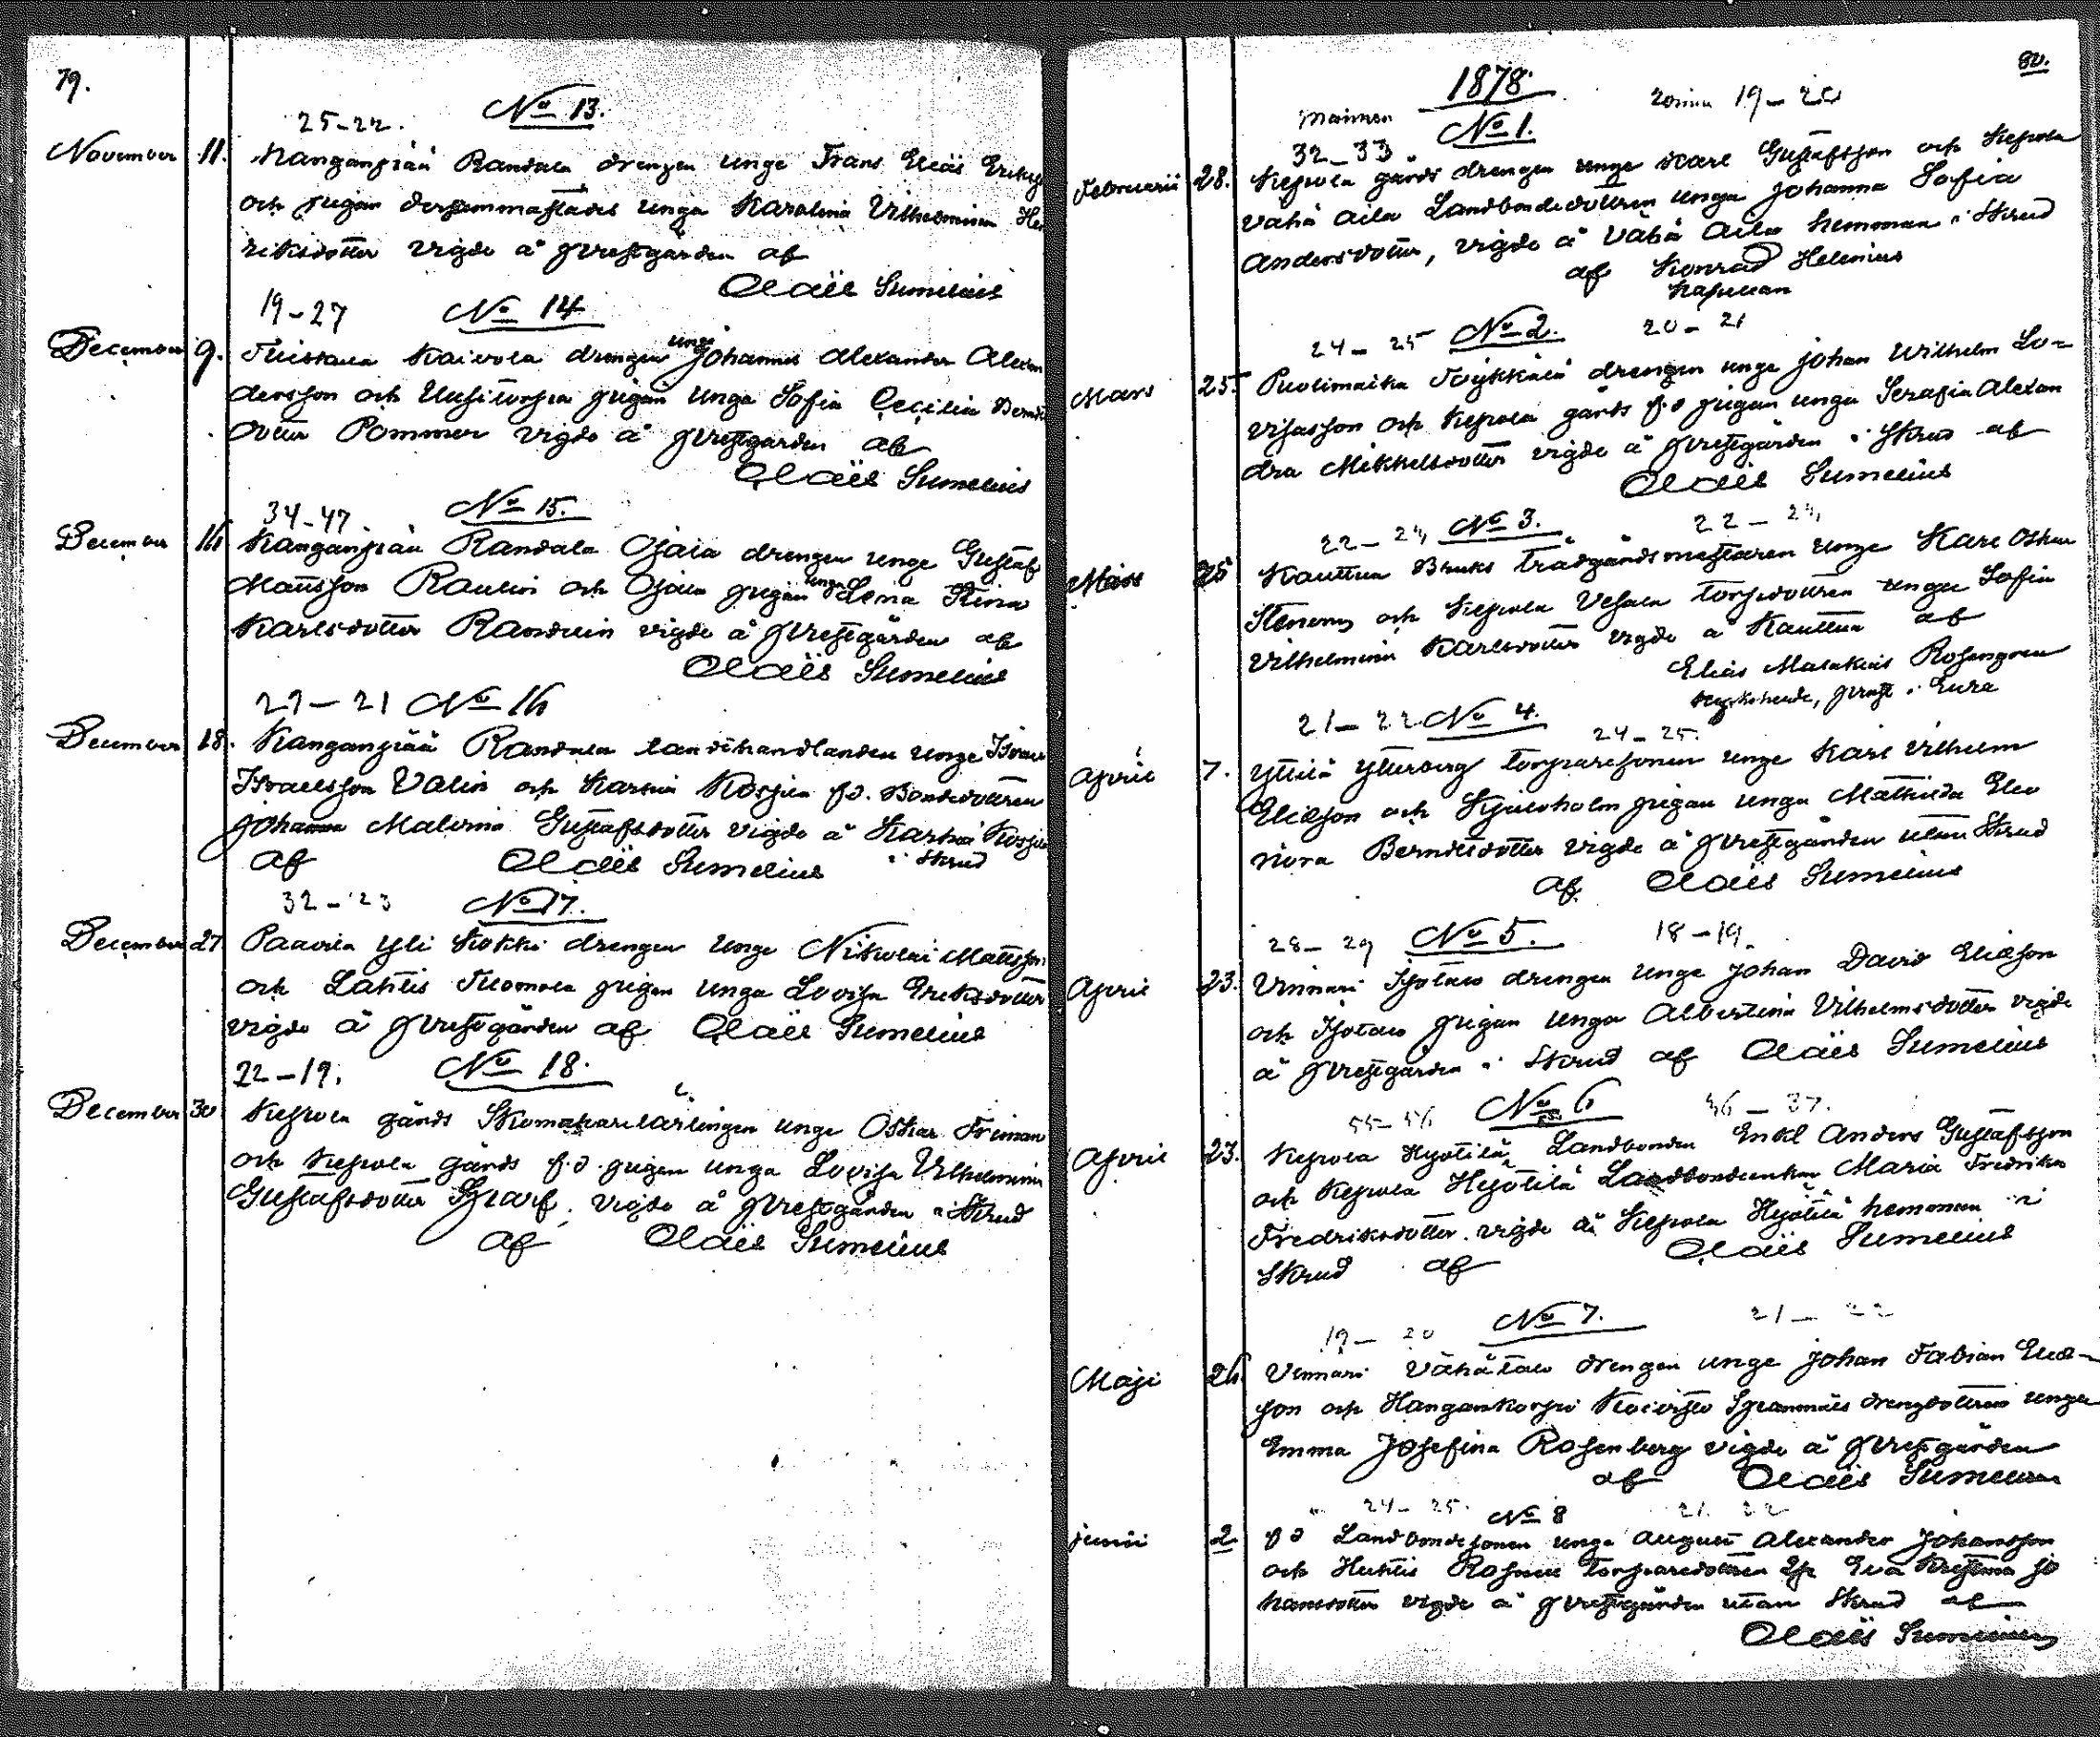 79.
No 13.
25-22.
November 11. Kanganpää Randala drengen unge Frans Eliäs Eriks
och pigan dersammastädes unga Karolina Vilhelmina Hen
riksdotter vigde å Prestgården af
Claës Sumelius
19-27 No 14
December 9. Kaivola drengen unge Johannes Alexander Alexan
dersson och Uusitorpa pigan unga Sofia Cecilia
dotter Pommer vigde å Prestgården af
Claës Sumelius
34-47 No 15.
December 16 Kanganpää Randala Ojala drengen unge Gustaf
Mattsson Raulin och Ojala pigan unga Lena Stina
Karlsdotter Randelin vigde å Prestgården af
Claës Sumelius
27-21 No 16
December 18. Kanganpää Randala landthandlanden unge Israel
Israelsson Valin och Karhiä Kospila f.d. Bondedottren
Johanna Malvina Gustafsdotter vigde å Karhiä Kospila
af Claës Sumelius i Skrud
32-23 No 17.
December 27 Paavila Yli Kokki drengen unge Nikolai Mattsson
och Lähtis Tuomola pigan unga Lovisa Eriksdotter
vigde å Prestgården af Claës Sumelius
22-19. No 18.
December 30 Kepola gårds Skomakarelärlingen unge Oskar Friman
och Kepola gårds f.d. pigan unga Lovisa Vilhelmina
Gustafsdotter vigde å Prestgården i Skrud
af Claës Sumelius
80.
1878.
19-20
No 1.
32-33
Februarii 28. Kepola gårds drengen unge Karl Gustafsson och Kepola
Vähä Aila Landbondedottren unga Johanna Sofia
Andersdotter, vigde å Vähä Aila hemman i Skrud
af Konrad Helenius
Kapellan
24-25 No 2. 20-21
Mars 25. Puolimatka Töykkälä drengen unge Johan Wilhelm Lo=
visasson och Kepola gårds f.d pigan unga Serafia Alexan
dra Mikkelsdotter vigde å Prestgården i Skrud af
Claës Sumelius
22-24 No 3. 22-24
Mars 25 Kauttua Bruks trädgårdsmästaren unge Karl Oskar
Stenroos och Kepola Vesala torpdottren unga Sofia
Vilhelmina Karlsdotter vigde å Kauttua af
Elias Malakias Rosengren
Kyrkoherde, Prost i Eura
21-22 No 4. 24-25.
April 7. Yttilä Ytterberg torparesonen unge Karl Vilhelm
Eliasson och pigan unga Mathilda Eleo
nora Berndtsdotter vigde å Prestgården utan Skrud
af Claës Sumelius
28-29 No 5. 18-19.
April 23. Vinnari Isotalo drengen unge Johan David Eliasson
och Isotalo pigan unga Albertina Vilhelmsdotter vigde
å Prestgården i Skrud af Claës Sumelius
55-56 No 6 36-37.
April 23. Kepola Hyötilä Landbonden Enkl Anders Gustafsson
och Kepola Hyötilä Landbondeenkan Maria Fredrika
Fredriksdotter vigde å Kepola Hyötilä hemman i
Skrud af Claës Sumelius
19-20 No 7. 21-22
Maji 26. Vinnari Vähätalo drengen unge Johan Fabian Elias-
son och Hangankorpi Koivisto Spannmåls drengdottren unga
Emma Josefina Rosenberg vigde å Prestgården
af Claës Sumelius
24-25. No 8 21.22
Junii 2 f d Landbondesonen unge August Alexander Johansson
och Huhtis torparedottren Eva Kristina Jo
hansdotter vigde å Prestgården utan Skrud af
Claës Sumelius